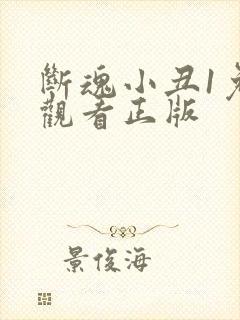 斷魂小丑1免
觀看正版
景俊海